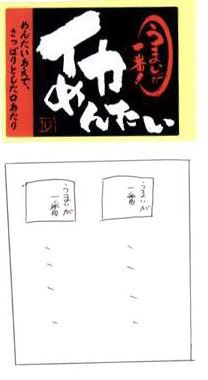 うまい!!
一番!
イカ
めんたい
めんたいあえで、
さっぱりとした口あたり
うまいが
一番
うまいが
一番